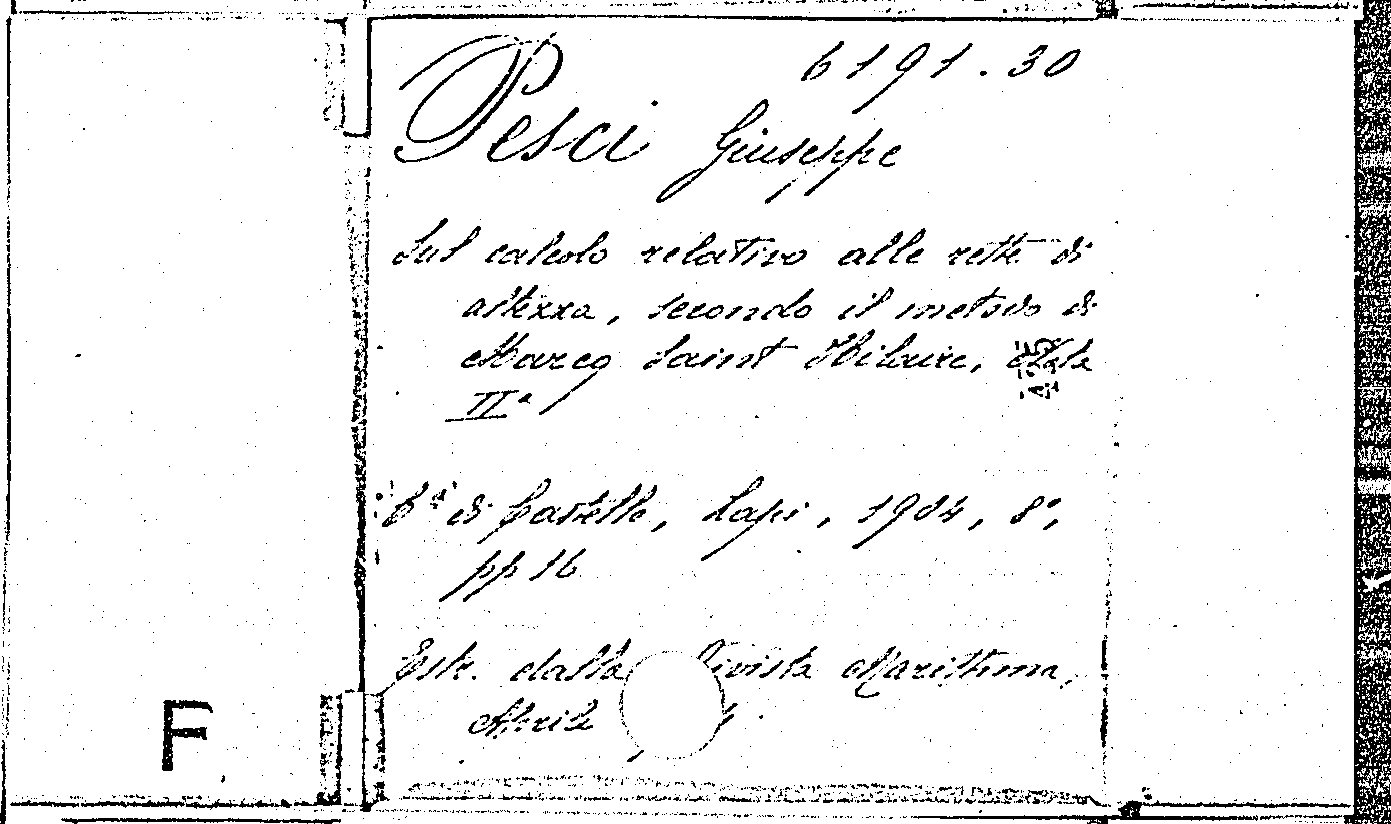 6191.30
Pesci Giuseppe
Sul calcolo relativo alle rette di
altezza, secondo il metodo di
Marcq Saint Hilaire, Nota
IIª
Cª di Castello, Lapi, 1904, 8°,
pp 16
Estr. dalla Rivista Marittima,
Aprile
F